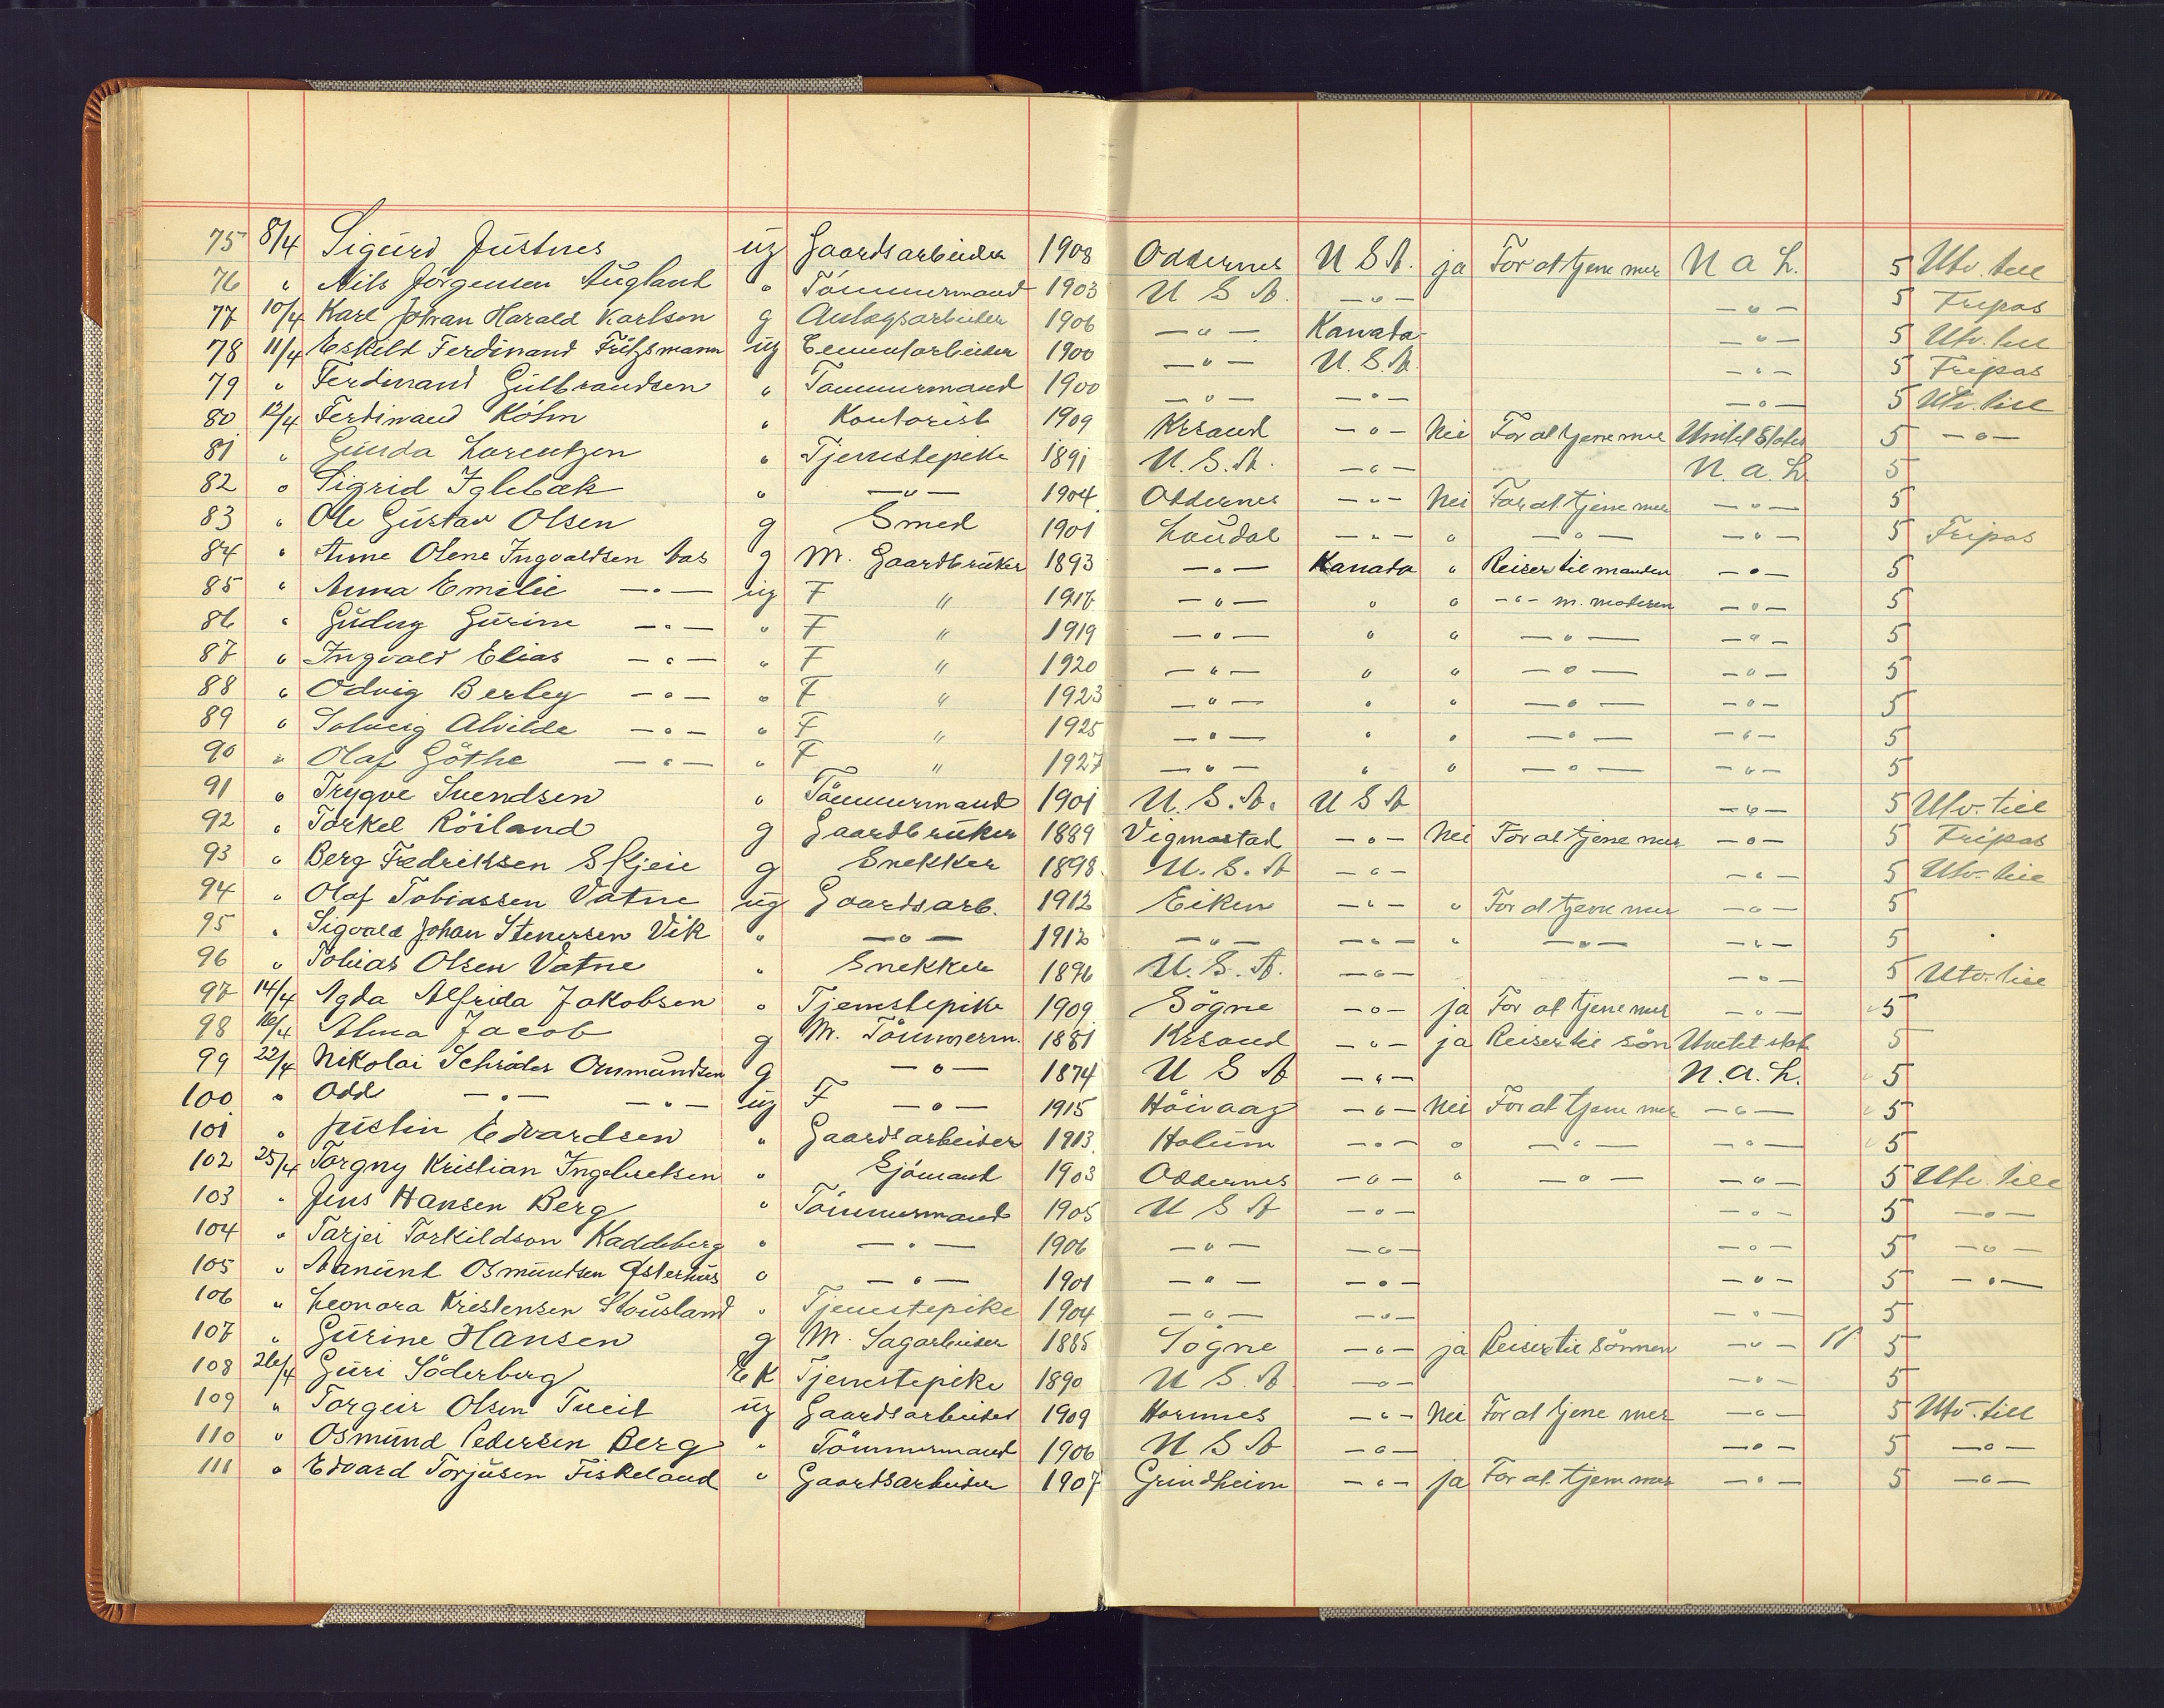 75 8/4 Sigurd Justnes ug Gaardsarbeider 1908 Oddernes U S A. ja For at tjene mer N a L. 5 Utv. till
76 " Nils Jörgensen Augland " Tömmermand 1903 U S A. —"— —"— 5 Fripas
77 10/4 Karl Johan Harald Karlsen g Anlegsarbeider 1906 —"— Kanada —"— 5 Utv. till
78 11/4 Eskild Ferdinand Fritzsmann ug Cementarbeider 1900 —"— U.S.A. —"— 5 Fripas
79 " Ferdinand Gulbrandsen " Tømmermand 1900 —"— —"— —"— 5 Utv. till
80 12/4 Ferdinand Köhn " Kontorist 1909 Krsand —"— Nei For at tjene mer United States 5 —"—
81 " Gunda Lorentzen " Tjenstepike 1891 U.S.A. —"— N.a.L. 5
82 " Sigrid Iglebæk " —"— 1904 Oddernes —"— Nei For at tjene mer —"— 5
83 " Ole Gustav Olsen g Smed 1901 Laudal —"— " —"— —"— 5 Fripas
84 " Anne Olene Ingvaldsen Aas g M. Gaardbruker 1893 —"— Kanada " Reiser til manden —"— 5
85 " Anna Emilie —"— ug F " 1917 —"— " " —"— m. moderen —"— 5
86 " Gudny Gurine —"— " F " 1919 —"— " " —"— —"— 5
87 " Ingvald Elias —"— " F " 1920 —"— " " —"— —"— 5
88 " Odvig Berley —"— " F " 1923 —"— " " —"— —"— 5
89 " Solveig Alvilde —"— " F " 1925 —"— " " —"— —"— 5
90 " Olaf Göthe —"— " F " 1927 —"— " " —"— —"— 5
91 " Trygve Svendsen " Tömmermand 1901 U.S.A. U S A —"— 5 Utv. till
92 " Torkel Röiland g Gaardbruker 1889 Vigmostad —"— Nei For at tjene mer —"— 5 Fripas
93 " Berg Fredriksen Skjeie g Snekker 1898 U.S.A —"— —"— 5 Utv. till
94 " Olaf Tobiassen Vatne ug Gaardsarb. 1912 Eiken —"— " For at tjene mer —"— 5
95 " Sigvald Johan Stenersen Vik " —"— 1912 —"— —"— " —"— —"— 5
96 " Tobias Olsen Vatne " Snekker 1896 U.S.A. —"— —"— 5 Utv. till
97 14/4 Agda Alfrida Jakobsen " Tjenstepike 1909 Sögne —"— ja For at tjene mer —"— 5
98 16/4 Alma Jacob g M. Tömmerm. 1881 Krsand —"— ja Reiser til sön Unitet stat 5
99 22/4 Nikolai Schröder Osmundsen g —"— 1874 U S A —"— N.a.L. 5
100 " Odd —"— —"— ug F —"— 1915 Höivaag —"— Nei For at tjene mer —"— 5
101 " Justin Edvardsen " Gaardsarbeider 1913 Holum —"— " —"— —"— 5
102 25/4 Torgny Kristian Ingebretsen " Sjömand 1903 Oddernes —"— " —"— —"— 5 Utv. till
103 " Jens Hansen Berg " Tömmermand 1905 U S A —"— —"— 5 —"—
104 " Tarjei Torkildson Kaddeberg " —"— 1906 —"— —"— —"— 5 —"—
105 " Aanund Osmundsen Østerhus " —"— 1901 —"— —"— —"— 5 —"—
106 " Leonora Kristensen Stousland " Tjenstepike 1904 —"— —"— —"— 5
107 " Gurine Hansen g M. Sagarbeider 1885 Sögne —"— ja Reiser til sönnen —"— 11 5
108 26/4 Guri Söderberg E K Tjenstepike 1890 U S.A —"— —"— 5
109 " Torgeir Olsen Tveit ug Gaardsarbeider 1909 Hornnes —"— Nei For at tjene mer —"— 5 Utv. till
110 " Osmund Pedersen Berg " Tömmermand 1906 U S A —"— —"— 5 —"—
111 " Edvard Torjusen Fiskeland " Gaardsarbeider 1907 Grindheim —"— ja For at tjene mer —"— 5 —"—